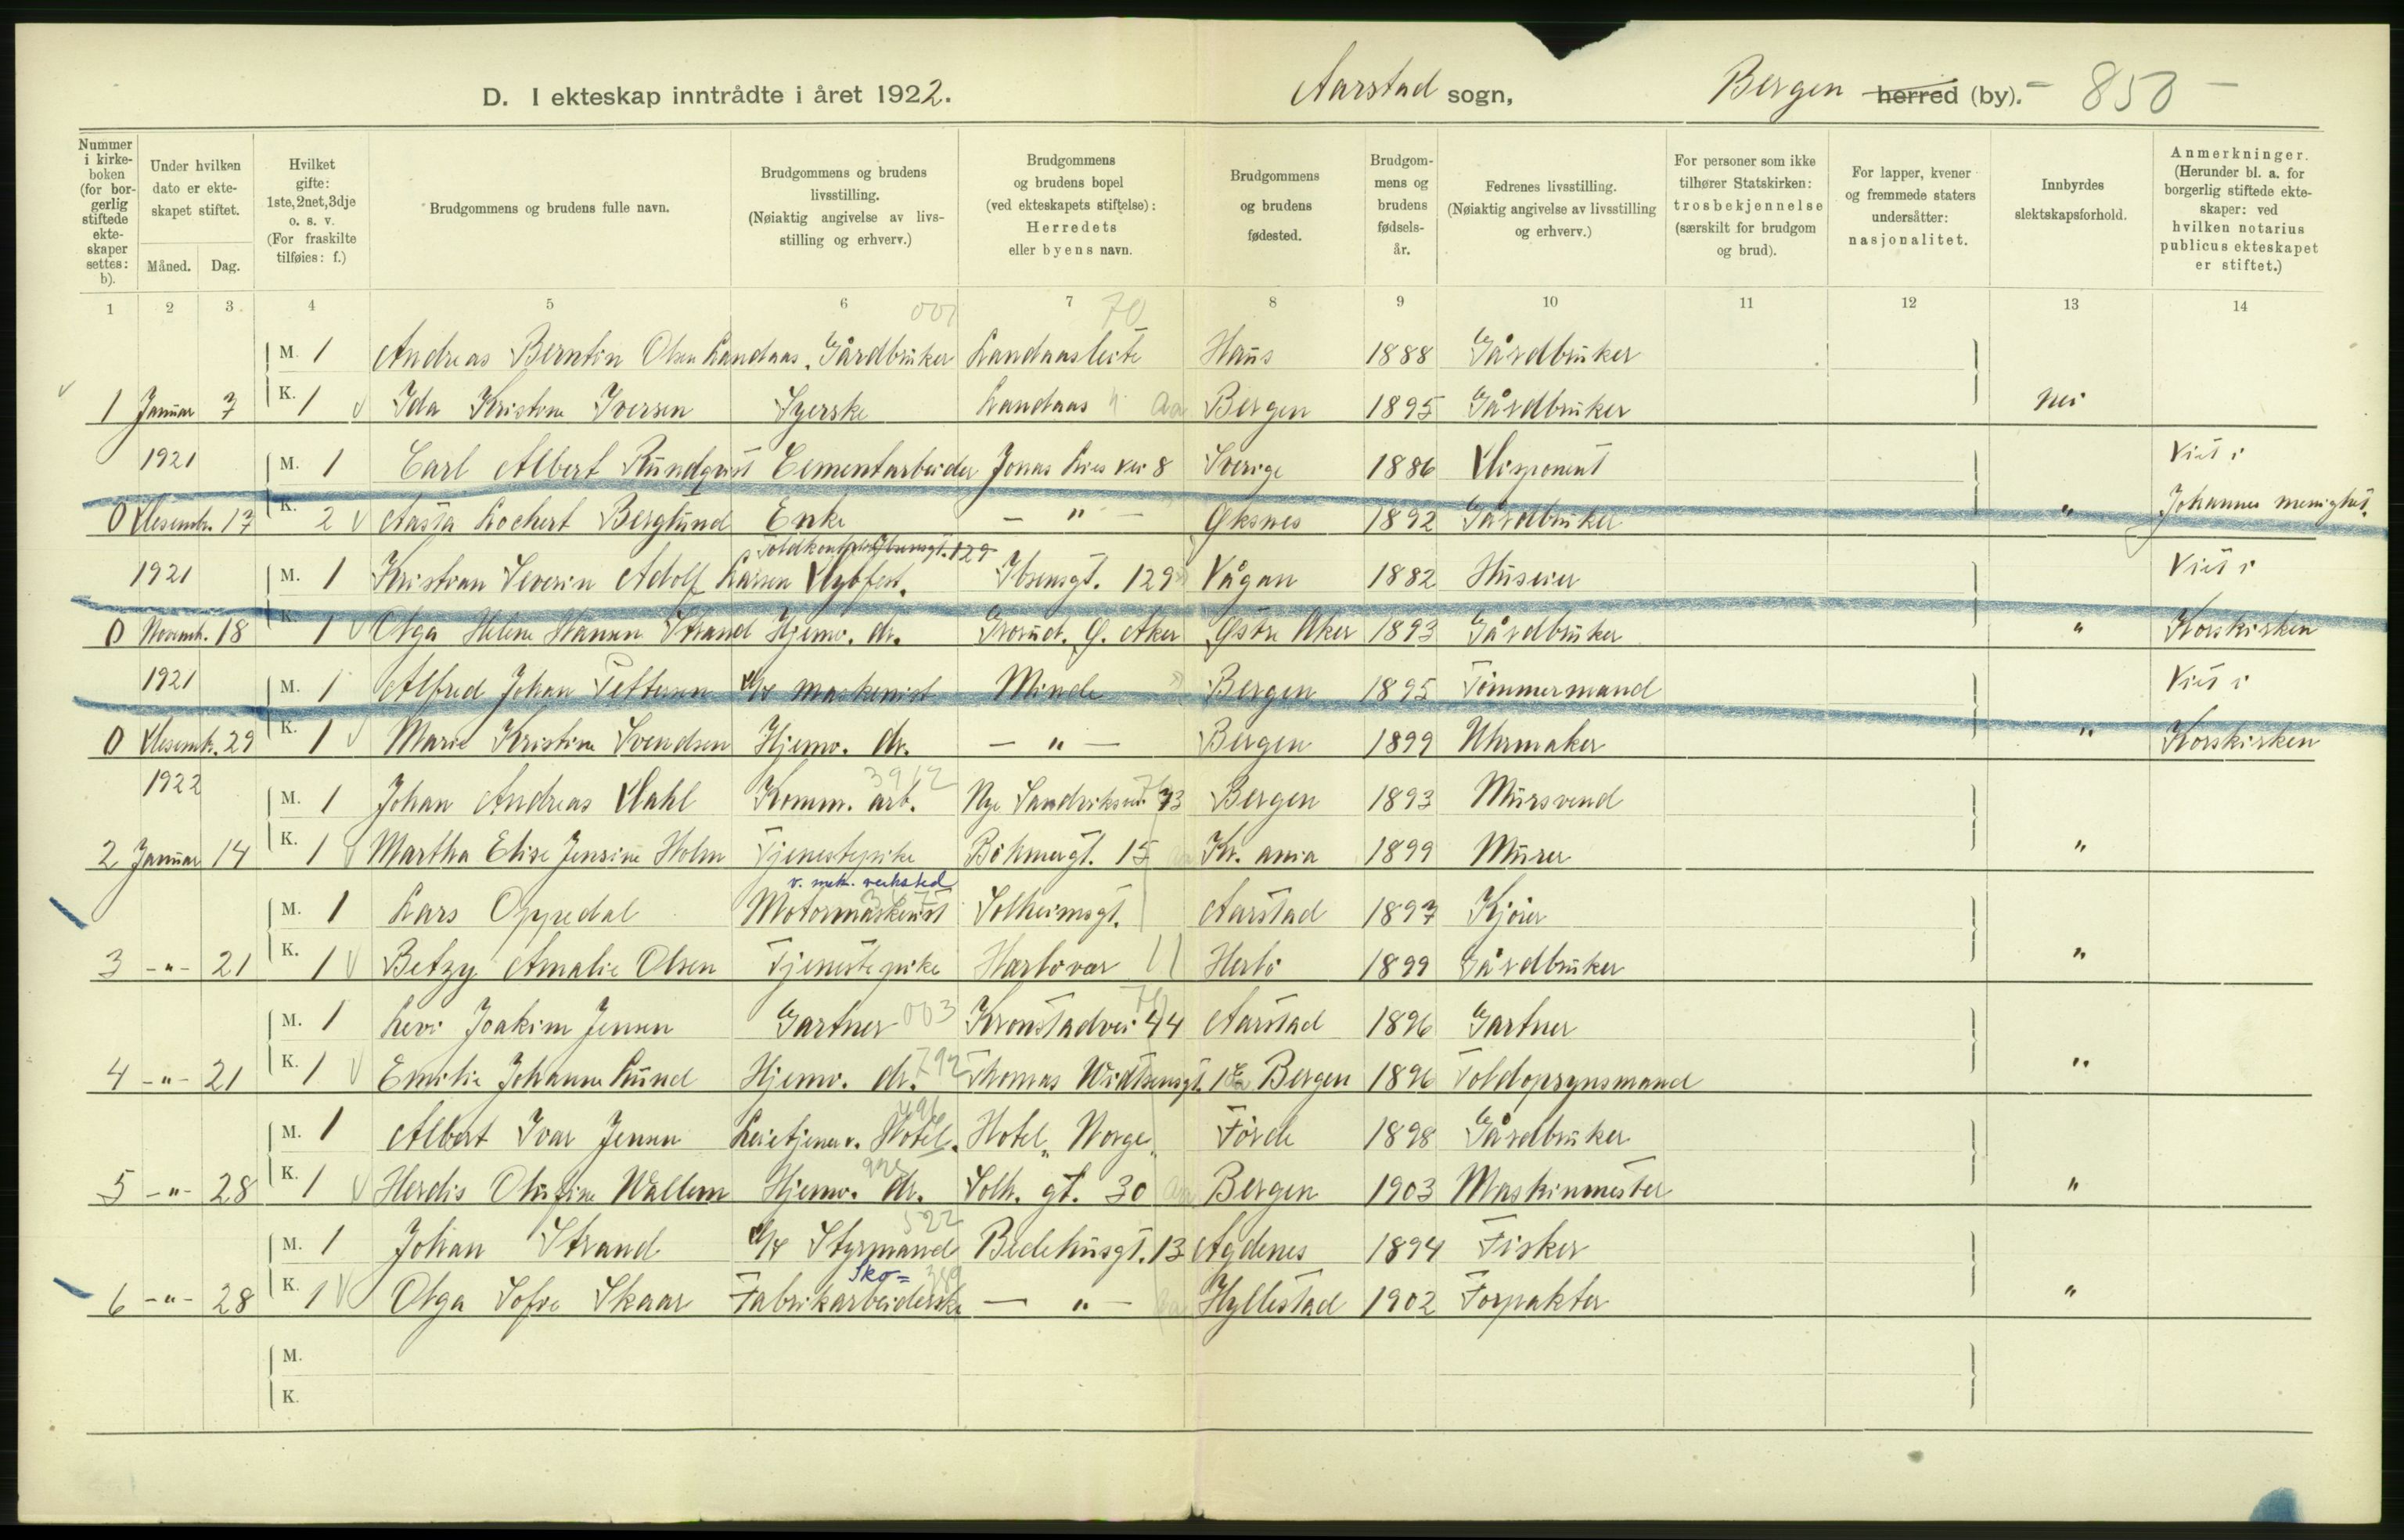 D. I ekteskap inntrådte i året 1922. Aarstad sogn, Bergen herred (by). - 850 -
Nummer i kirke-boken (for bor-gerlig stiftede ekte-skaper settes: b).
Under hvilken dato er ekte-skapet stiftet.
Måned. Dag.
Hvilket gifte: 1ste, 2net, 3dje o. s. v. (For fraskilte tilføies: f.)
Brudgommens og brudens fulle navn.
Brudgommens og brudens livsstilling. (Nøiaktig angivelse av livs-stilling og erhverv.)
Brudgommens og brudens bopel (ved ekteskapets stiftelse): Herredets eller byens navn.
Brudgommens og brudens fødested.
Brudgom-mens og brudens fødsels-år.
Fedrenes livsstilling. (Nøiaktig angivelse av livsstilling og erhverv.)
For personer som ikke tilhører Statskirken: trosbekjennelse (særskilt for brudgom og brud).
For lapper, kvener og fremmede staters undersåtter: nasjonalitet.
Innbyrdes slektskapsforhold.
Anmerkninger. (Herunder bl. a. for borgerlig stiftede ekte-skaper: ved hvilken notarius publicus ekteskapet er stiftet.)
1 2 3 4 5 6 7 8 9 10 11 12 13 14
001 70
M. 1 Andreas Berntin Olsen Landaas. Gårdbruker Landaasleite Haus 1888 Gårdbruker
1 Januar 7 K. 1 Ida Kristine Iversen Syerske Landaas Bergen 1895 Gårdbruker Nei
1921 M. 1 Carl Albert Rundqvist Cementarbeider Jonas Lies vei 8 Sverige 1886 Disponent Viet i
0 Desemb. 17 K. 2 Aasta Lochert Berglund Enke - " - Øksnes 1892 Gårdbruker " Johannes menighet.
129
1921 M. 1 Kristian Severin Adolf Larsen Dybfest. Ibsensgt. 129 Vågan 1882 Huseier Viet i
0 Novemb. 18 K. 1 Olga Helene Hansen Strand Hjemv. dr. Grorud. Ø. Aker Østre Aker 1893 Gårdbruker " Korskirken
1921 M. 1 Alfred Johan Pettersen D/S maskinist Minde Bergen 1895 Tømmermand Viet i
0 Desemb. 29 K. 1 Marie Kristine Svendsen Hjemv. dr. - " - Bergen 1899 Uhrmaker " Korskirken
3912
1922 M. 1 Johan Andreas Dahl Komm. arb. Nye Sandviksvei 73 Bergen 1893 Mursvend
2 Januar 14 K. 1 Martha Elise Jensine Holm Tjenestepike Böhmergt. 15 Kr. ania 1899 Murer "
v. mek. verksted
M. 1 Lars Oppedal Motormaskinist Solheimsgt. Aarstad 1897 Kjøier
3 -"- 21 K. 1 Betzy Amalie Olsen Tjenestepike Harlovar Herlö 1899 Gårdbruker "
M. 1 Levi Joakim Jensen Gartner 003 Kronstadvei 44 Aarstad 1896 Gartner
4 -"- 21 K. 1 Emilie Johanne Lund Hjemv. dr. 792 Thomas Widtsensgt. Bergen 1896 Toldopsynsmand "
M. 1 Albert Ivar Jensen Leietjener v. Hotel. Hotel "Norge" Förde 1898 Gårdbruker
5 -"- 28 K. 1 Herdis Olufine Wallem Hjemv. dr. Solh. gt. 30 Bergen 1903 Maskinmester "
522
M. 1 Johan Strand D/S Styrmand Bedehusgt. 13 Agdenes 1894 Fisker
Sko=
6 -"- 28 K. 1 Olga Sofie Skaar Fabrikarbeiderske - " - Hyllestad 1902 Forpakter "
M.
K.